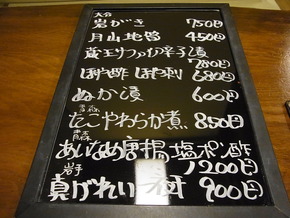 大分
岩がき 750円
月山地酒 450円
蔵王けっか辛子漬
780円
ほや酢 ほや刺 680円
ぬか漬 600円
たこやわらか煮 850円
青森
あいなめ唐揚塩ポン酢
岩手 1200円
真がれい 900円